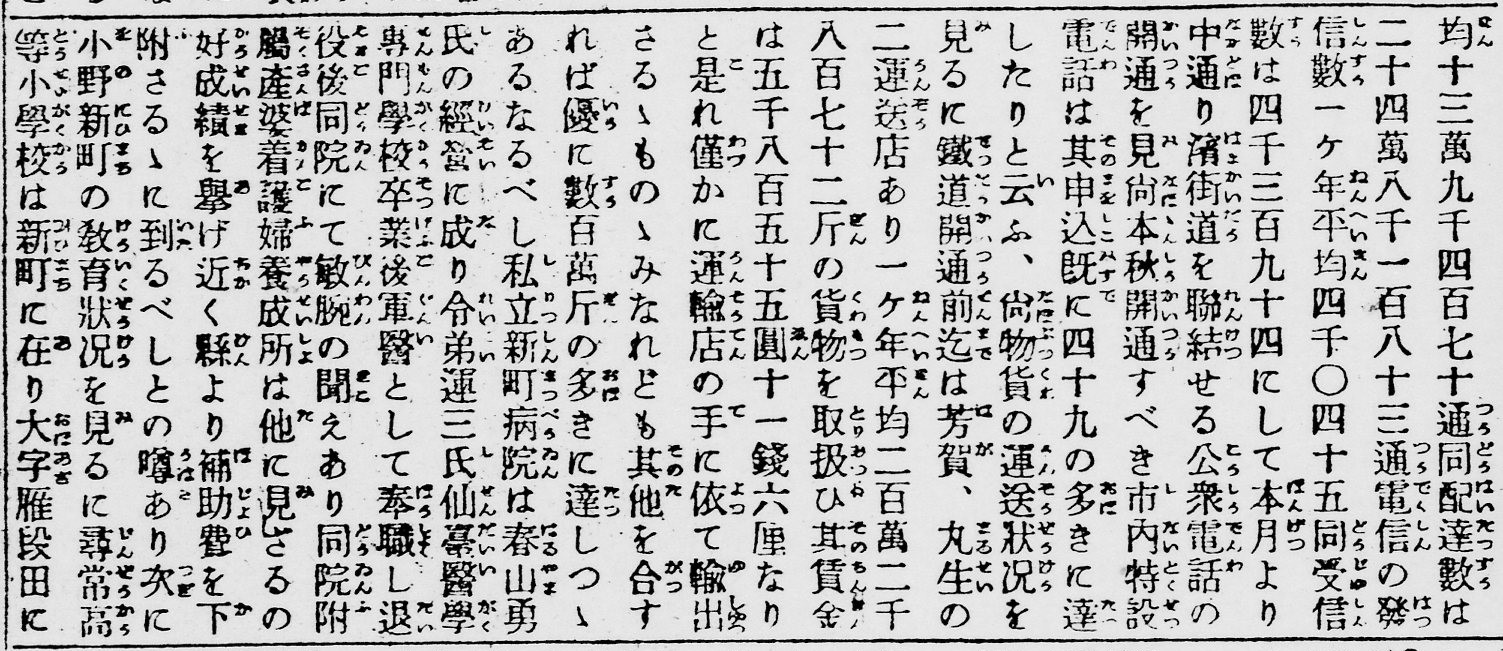 均十三萬九千四百七十通同配達數は
二十四萬八千一百八十三通電信の發
信數一ヶ年平均四千〇四十五同受信
數は四千三百九十四にして本月より
中通り濱街道を聯結せる公衆電話の
開通を見尙本秋開通すべき市內特設
電話は其申込既に四十九の多きに達
したりと云ふ、尙物貨の運送狀况を
見るに鐵道開通前迄は芳賀、丸生の
二運送店あり一ヶ年平均二百萬二千
八百七十二斤の貨物を取扱ひ其賃金
は五千八百五十五圓十一錢六厘なり
と是れ僅かに運輸店の手に依て輸出
さるゝものゝみなれども其他を合す
れば優に數百萬斤の多きに達しつゝ
あるなるべし私立新町病院は春山勇
氏の經營に成り令弟運三氏仙臺醫學
專門學校卒業後軍醫として奉職し退
役後同院にて敏腕の聞えあり同院附
屬產婆着護婦養成所は他に見ざるの
好成績を擧げ近く縣より補助費を下
附さるゝに到るべしとの噂あり次に
小野新町の敎育狀况を見るに尋常高
等小學校は新町に在り大字雁段田に